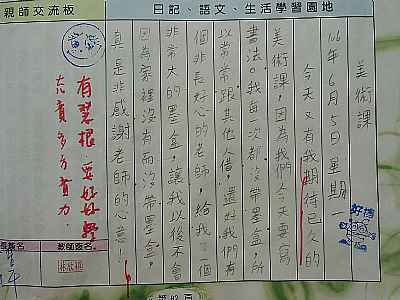 親師交流板
日記、語文、生活學習園地
美術課
106年6月5日星期
今天又有我期待已久的
美術課，因為我們今天要寫
書法。我每一次都沒帶墨盒，所
以常常跟其他人借，還好我們有
個非長好心的老師，給我了一個
非常大的墨盒，讓我以後不會
因為家裡沒有而沒帶墨盒，
真是非感謝老師的心意！
好棒
有慧根，要好好
長簽名
教師簽名